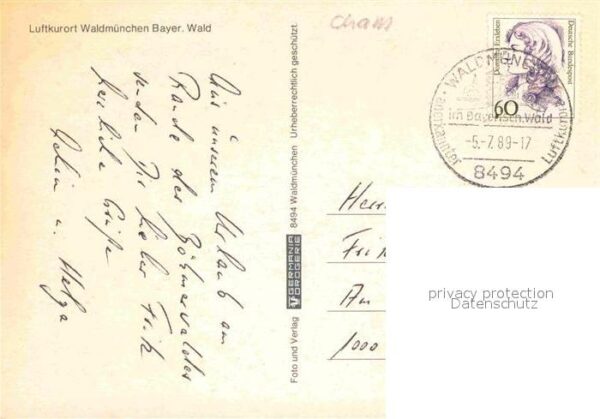 Luftkurort Waldmünchen Bayer. Wald
Cham
Aus unserem Urlaub am
Rande des Böhmerwaldes
senden Dir lieber Fritz
herzliche Grüße
u. Helga
Foto und Verlag GERMANIA DROGERIE 8494 Waldmünchen Urheberrechtlich geschützt
Deutsche Bundespost
60
WALDMÜNCHEN
im Bayerisch. Wald
-5.-7.89-17
8494
Luftkurort
Herr
Fritz
Am
1000
privacy protection
Datenschutz